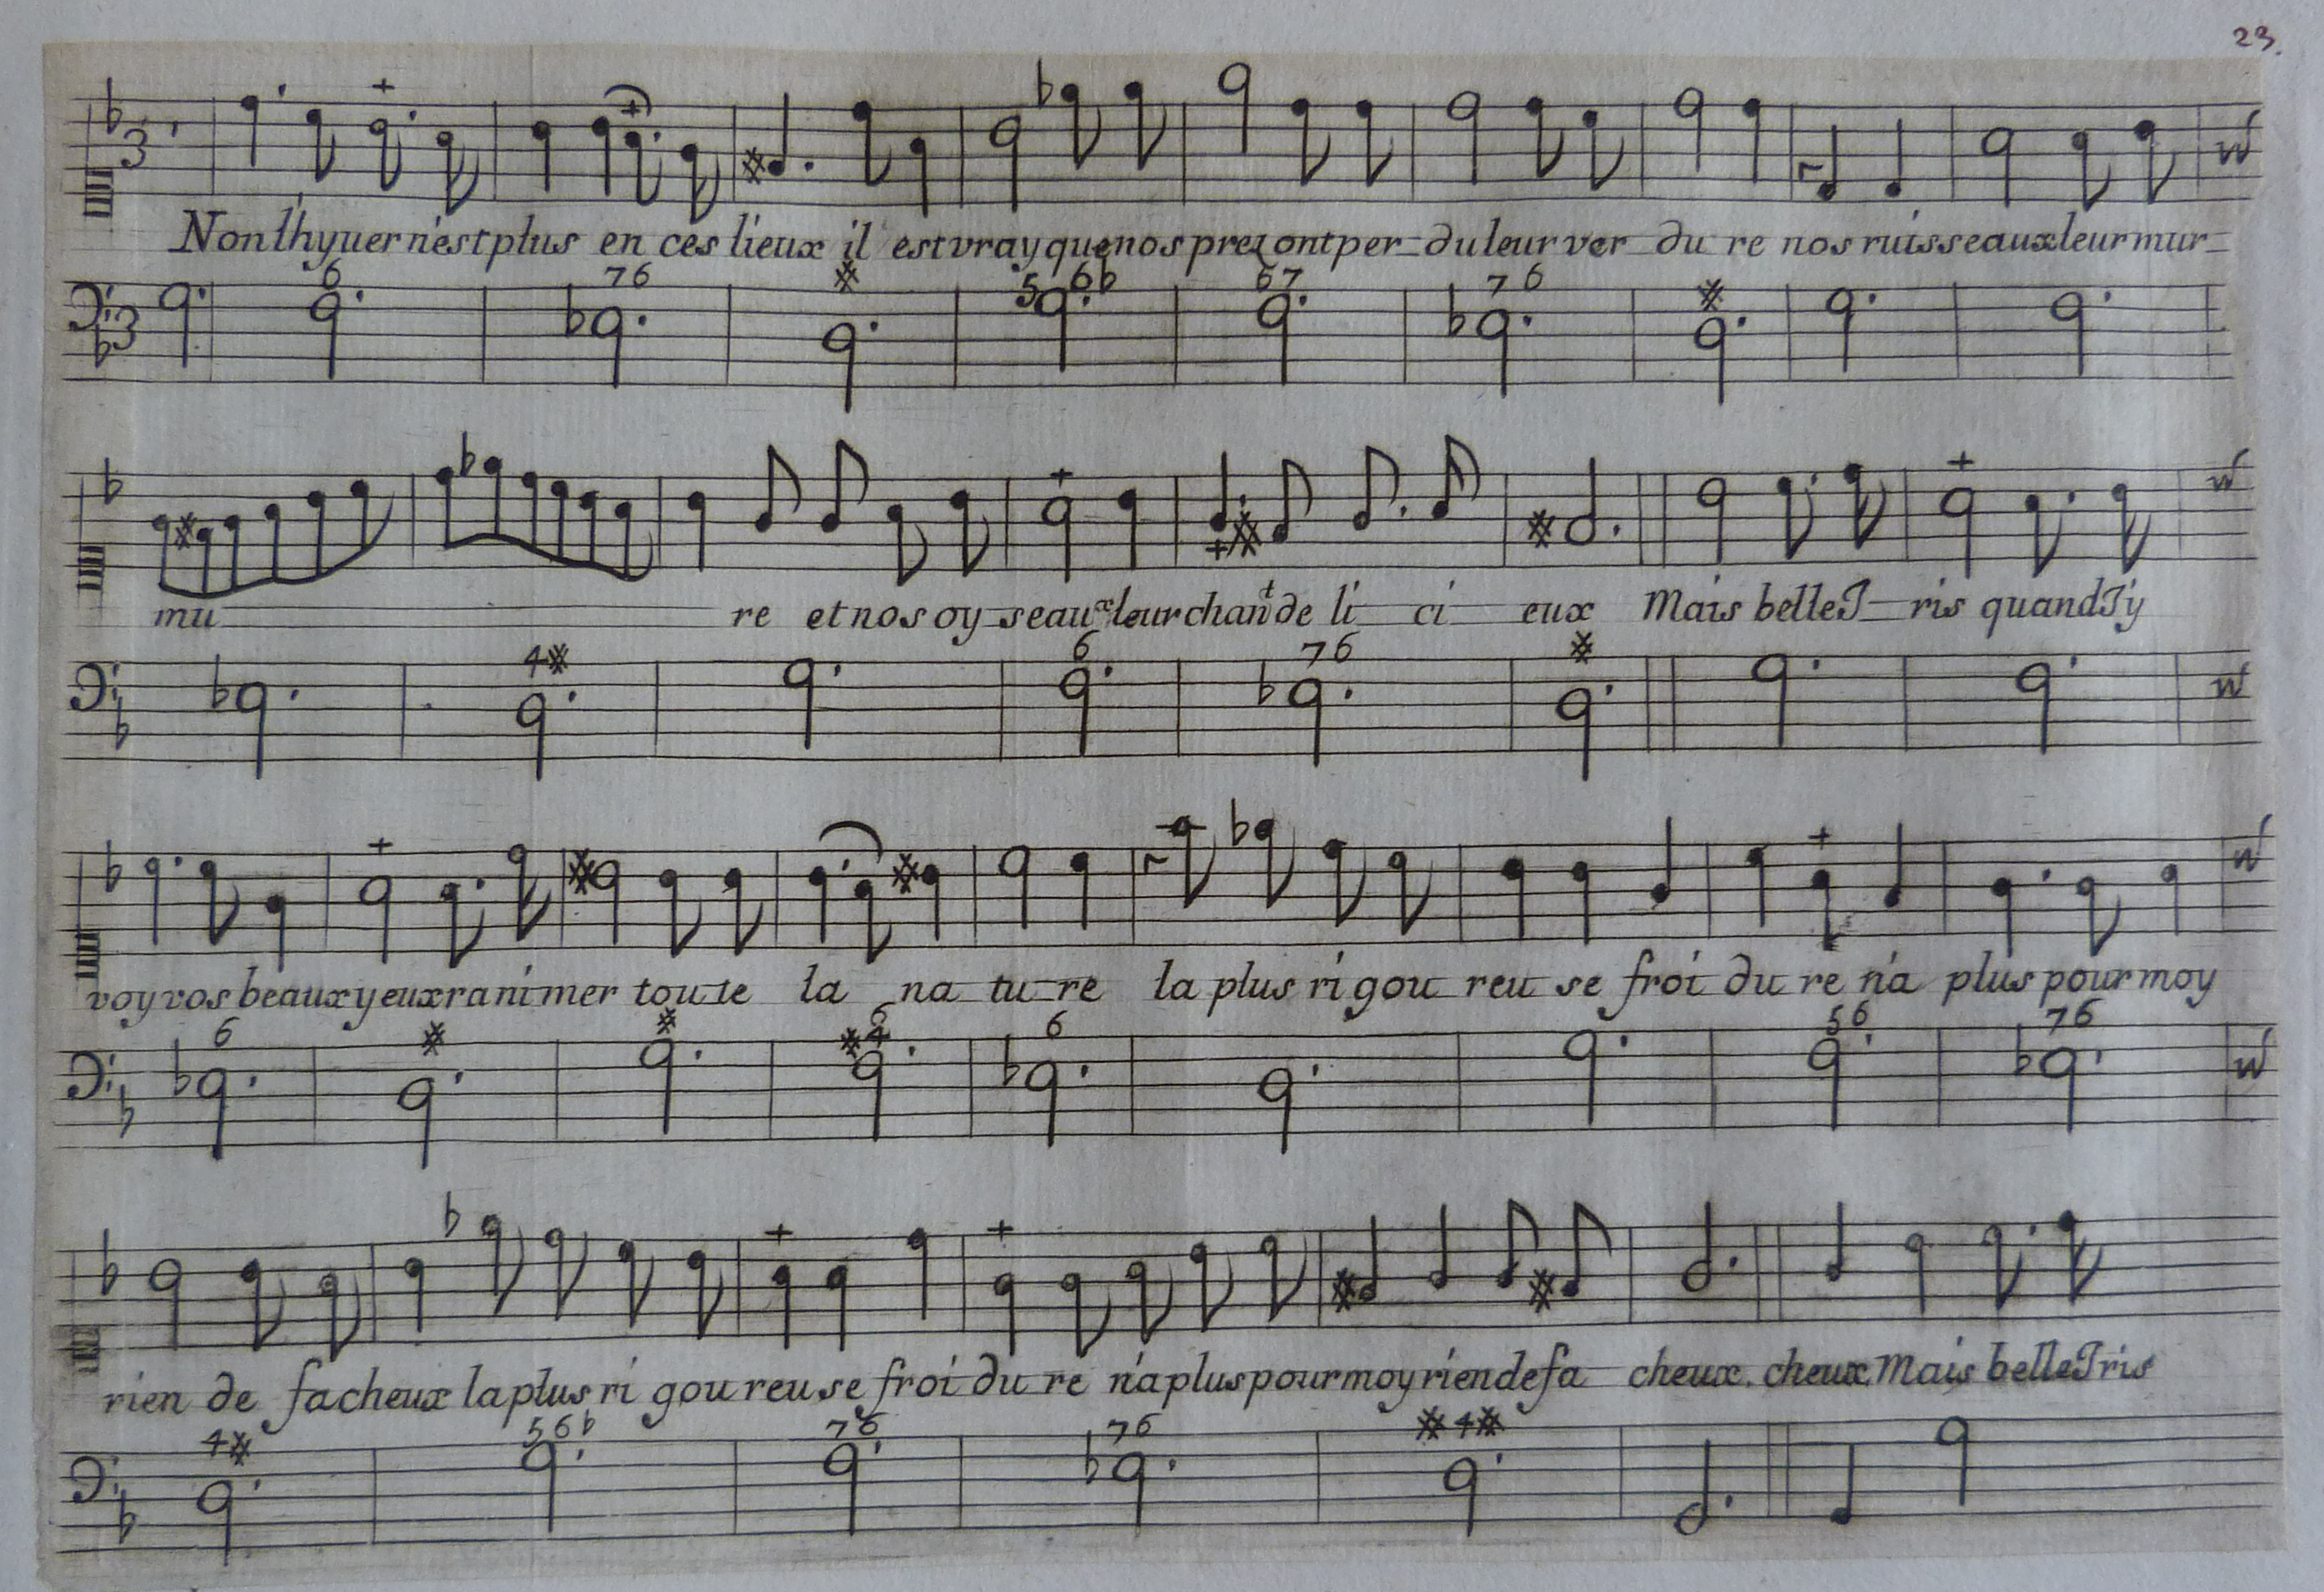 23.
Non lhyver n'est plus en ces lieux il est vray que nos prez ont per du leur ver du re nos ruisseaux leur mur
6 76 # 5 6b 67 76 #
mu re et nos oy seaux leur chant de li ci eux Mais belle I ris quand J'y
4# 6 76 #
voy vos beaux yeux ra ni mer toute la na tu re la plus ri gou reu se froi du re n'a plus pour moy
6 # # #4 6 6 56 76
rien de facheux la plus ri gou reu se froi du re n'a plus pour moy rien de fa cheux. cheux. Mais belle Iris
4# 56b 76 76 #4#